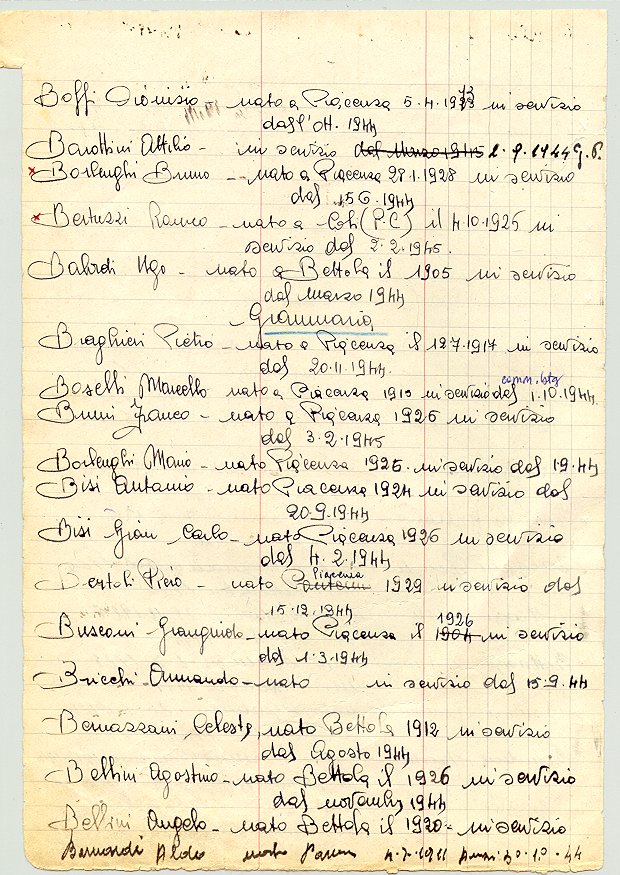 Boffi Dionisio nato a Piacenza 5.4.19 in servizio
dall'ott. 1944
Barottini Attilio - in servizio dal Marzo 1945 1.9.1944 G.P.
x Borlenghi Bruno - nato a Piacenza 28.1.1928 in servizio
dal 15 6.1944
x Bertuzzi Romeo - nato a Coli (P.C) il 4.10.1925 in
servizio dal 2.2.1945.
Balordi Ugo - nato a Bettola il 1905 in servizio
dal marzo 1944
Grammaria
Braghieri Pietro - nato a Piacenza il 12.7.1917 in servizio
dal 20.11.1944.
comm. btg
Boselli Marcello nato a Piacenza 1910 in servizio dal 1.10.1944.
Bruni Franco - nato a Piacenza 1926 in servizio
dal 3.2.1945
Borlenghi Mario - nato Piacenza 1926. in servizio dal 1.9.44
Bisi Antonio - nato Piacenza 1924 in servizio dal
20.9.1944
Bisi Gian Carlo - nato Piacenza 1926 in servizio
dal 4.2.1944
Piacenza
Bertoli Piero - nato 1929 in servizio dal
15.12.1944
1926
Busconi Gianguido - nato Piacenza il 1904 in servizio
dal 1.3.1944
Bricchi Armando - nato in servizio dal 15.9.44
Bernazzani Celeste, nato Bettola 1912 in servizio
dal Agosto 1944
Bellini Agostino - nato Bettola il 1926 in servizio
dal novembre 1944
Bellini Angelo - nato Bettola il 1920 - in servizio
Bernardi Aldo 4.7.1911 30.10.44